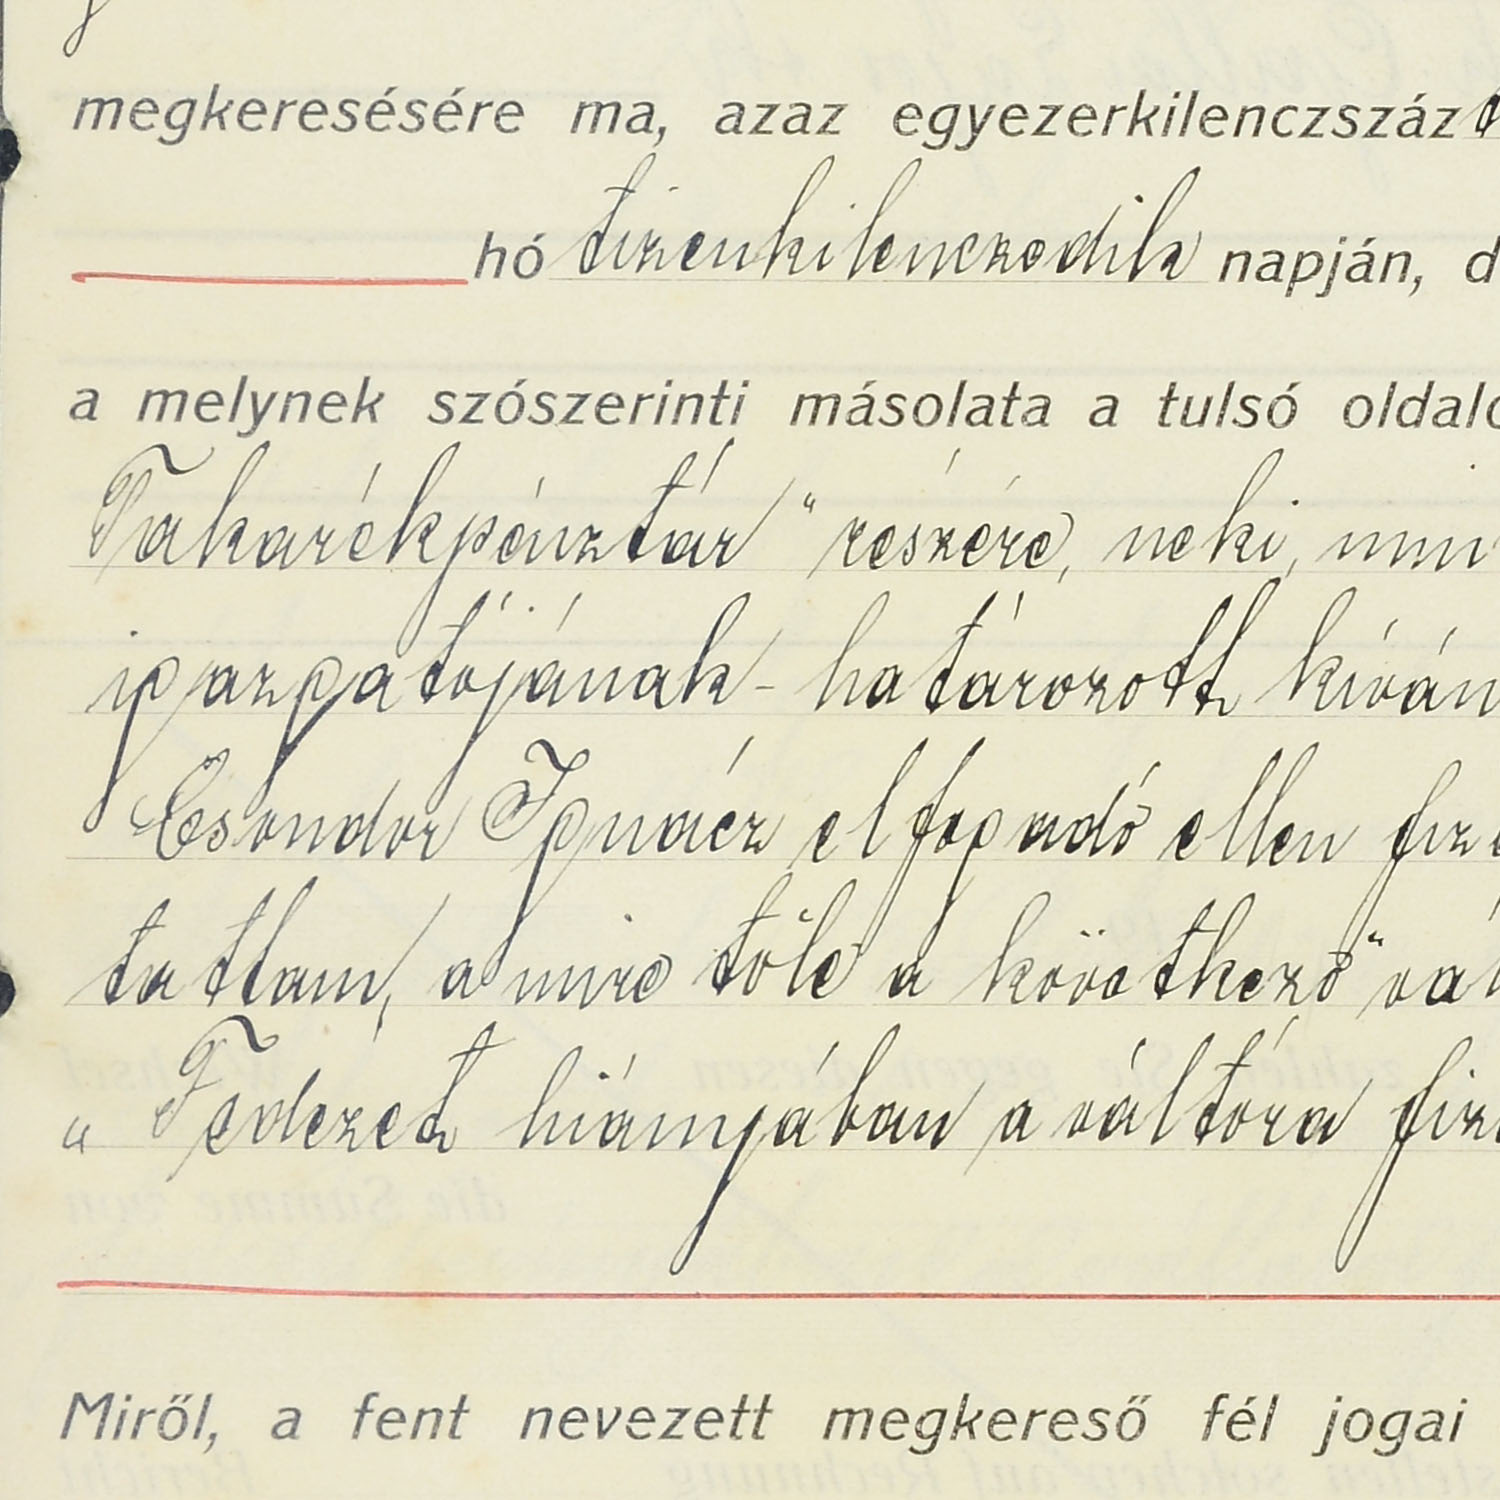 megkeresésére ma, azaz egyezerkilenczszáz
hó tizenkilenczedik napján, d
a melynek szószerinti másolata a tulsó oldalo
Takarékpénztár" részére, neki, min
igazgatójának - határozott kíván
Csondor Ignácz elfogadó ellen fize
tattam, a mire tőle a következő vál
„Fedezet hiányjában a váltóra fize
Miről, a fent nevezett megkereső fél jogai